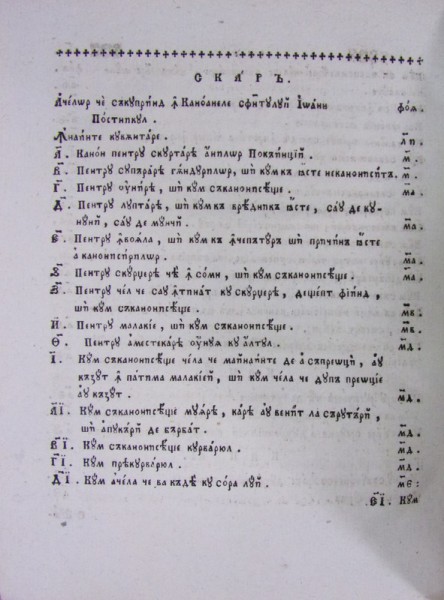 СКАРЪ.
Ачѣлѡр че съкꙋпринд ꙟ Каноанеле сфинтꙋлꙋй Іѡанн
Постникꙋл.
Ꙟнаинте кꙋвѫнтаре.
А҃. Канон пентрꙋ скꙋртарѣ анилѡр Покъинцїй. м҃.
В҃. Пентрꙋ сꙋпърарѣ гѫндꙋрилѡр, ши кꙋм къ ꙗсте неканонисить. м҃.
Г҃. Пентрꙋ оунире, ши кꙋм съканонисѣще. м҃а.
Д҃. Пентрꙋ лꙋптаре, ши кꙋм къ врѣдник ꙗсте, саꙋ де кꙋ
нꙋни, саꙋ де мꙋнчи. м҃а.
Є҃. Пентрꙋ ꙟвоꙗла, ши кꙋм къ ꙟчепꙋтꙋр ши причин ꙗсте
а канонисирилѡр. м҃а.
Ѕ҃. Пентрꙋ скꙋрџере че ꙟ сомн, ши кꙋм съканонисѣще. м҃а.
З҃. Пентрꙋ чел че саꙋ ꙟтинат кꙋ скꙋрџере, дещепт фїинд,
ши кꙋм съканонисѣще. м҃в.
И҃. Пентрꙋ малакїе, ши кꙋм съканонисѣще. м҃в.
Ѳ҃. Пентрꙋ аместекарѣ оунꙋꙗ кꙋ алтꙋл. м҃д.
І҃. Кꙋм съканонисѣще чела че маинаинте де а съпреѡци, аꙋ
къзꙋт ꙟ патима малакїей, ши кꙋм чела че дꙋпъ преѡцїе
аꙋ къзꙋт. м҃д.
АІ҃. Кꙋм съканонисѣще мꙋꙗрѣ, карѣ аꙋ венит ла сърꙋтърй,
ши апꙋкърй де бърбат. м҃д.
ВІ҃. Кꙋм съканонисѣще кꙋрварюл. м҃д.
ГІ҃. Кꙋм прѣкꙋрварюл. м҃д.
ДІ҃. Кꙋм ачела че ва къдѣ кꙋ сора лꙋй. м҃є:
ЄІ҃. Кꙋм